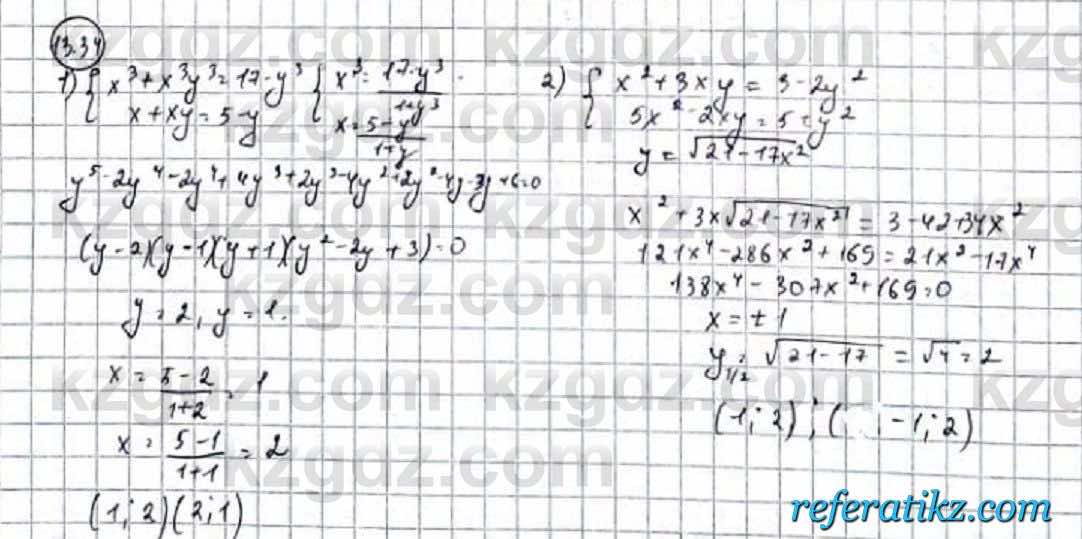 13.34
1) { x³ + x³y³ = 17 - y³ { x³ = (17 - y³)/(1 + y³)
x + xy = 5 - y x = (5 - y)/(1 + y)
y⁵ - 2y⁴ - 2y⁴ + 4y³ + 2y³ - 4y² + 2y² - 4y - 3y + 6 = 0
(y - 2)(y - 1)(y + 1)(y² - 2y + 3) = 0
y = 2, y = 1.
x = (5 - 2)/(1 + 2) = 1
x = (5 - 1)/(1 + 1) = 2
(1; 2)(2; 1)
2) { x² + 3xy = 3 - 2y²
5x² - 2xy = 5 + y²
y = √21 - 17x²
x² + 3x√21 - 17x² = 3 - 42 + 34x²
121x⁴ - 286x² + 169 = 21x² - 17x⁴
138x⁴ - 307x² + 169 = 0
x = ± 1
y₁/₂ = √21 - 17 = √4 = 2
(1; 2); ( -1; 2)
kzgdz.com
referatikz.com